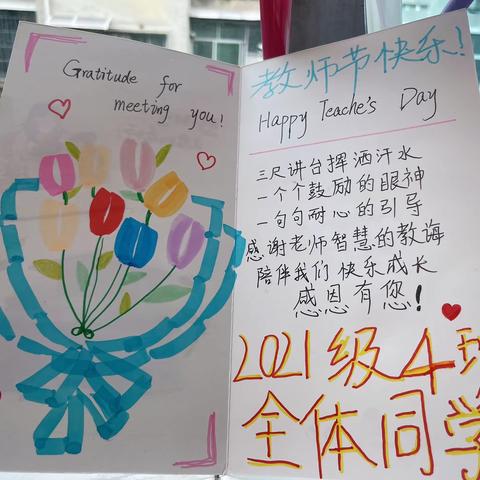 Gratitude for
meeting you!
教师节快乐!
Happy Teache's Day
三尺讲台挥洒汗水
一个个鼓励的眼神
一句句耐心的引导
感谢老师智慧的教诲
陪伴我们快乐成长
感恩有您!
2021级4班
全体同学